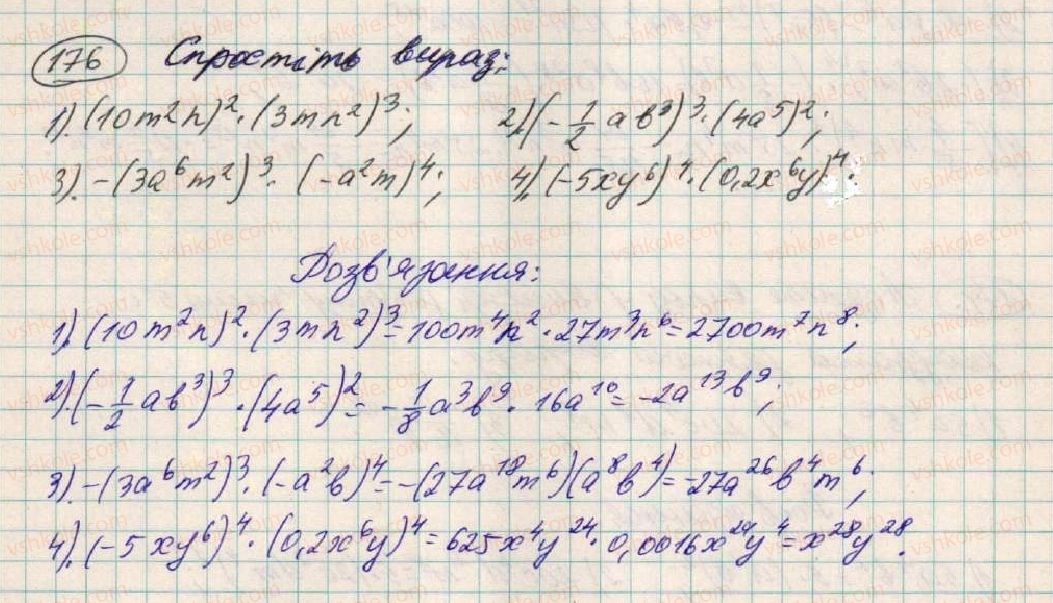 176 Спростіть вираз:
1). (10m²n)²·(3mn²)³; 2). (-1/2 ab³)³·(4a⁵)²;
3). -(3a⁶m²)³·(-a²m)⁴; 4). (-5xy⁶)⁴·(0,2x⁶y)⁴.
Розв'язання:
1). (10m²n)²·(3mn²)³=100m⁴n²·27m³n⁶=2700m⁷n⁸;
2). (-1/2 ab³)³·(4a⁵)²=-1/8 a³b⁹·16a¹⁰=-2a¹³b⁹;
3). -(3a⁶m²)³·(-a²b)⁴=-(27a¹⁸m⁶)(a⁸b⁴)=-27a²⁶b⁴m⁶;
4). (-5xy⁶)⁴·(0,2x⁶y)⁴=625x⁴y²⁴·0,0016x²⁴y⁴=x²⁸y²⁸.